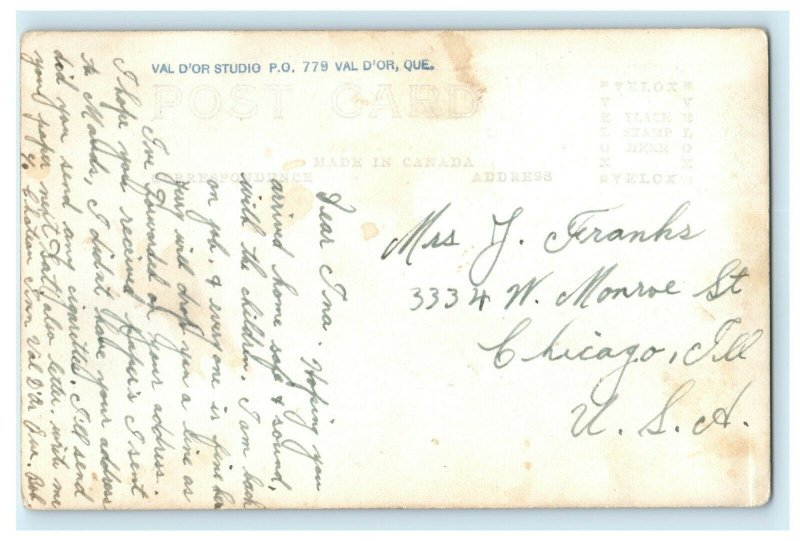 VAL D'OR STUDIO P.O. 779 VAL D'OR, QUE.
POST CARD
VELOX
PLACE
STAMP
HERE
VELOX
MADE IN CANADA
CORRESPONDENCE
ADDRESS
Dear Ina. Hoping you
arrived home safe & sound,
with the children. I am back
on job, & everyone is fine here
will drop you a line as
I've forwarded on your address.
I hope you received papers I sent
to Maude, I didn't have your address
did you send any cigarettes. I'll send
your paper next Sat, also letter, write me
% Inn Val D'Or Que. Bob.
Mrs J. Franks
3334 W. Monroe St
Chicago, Ill
U. S. A.